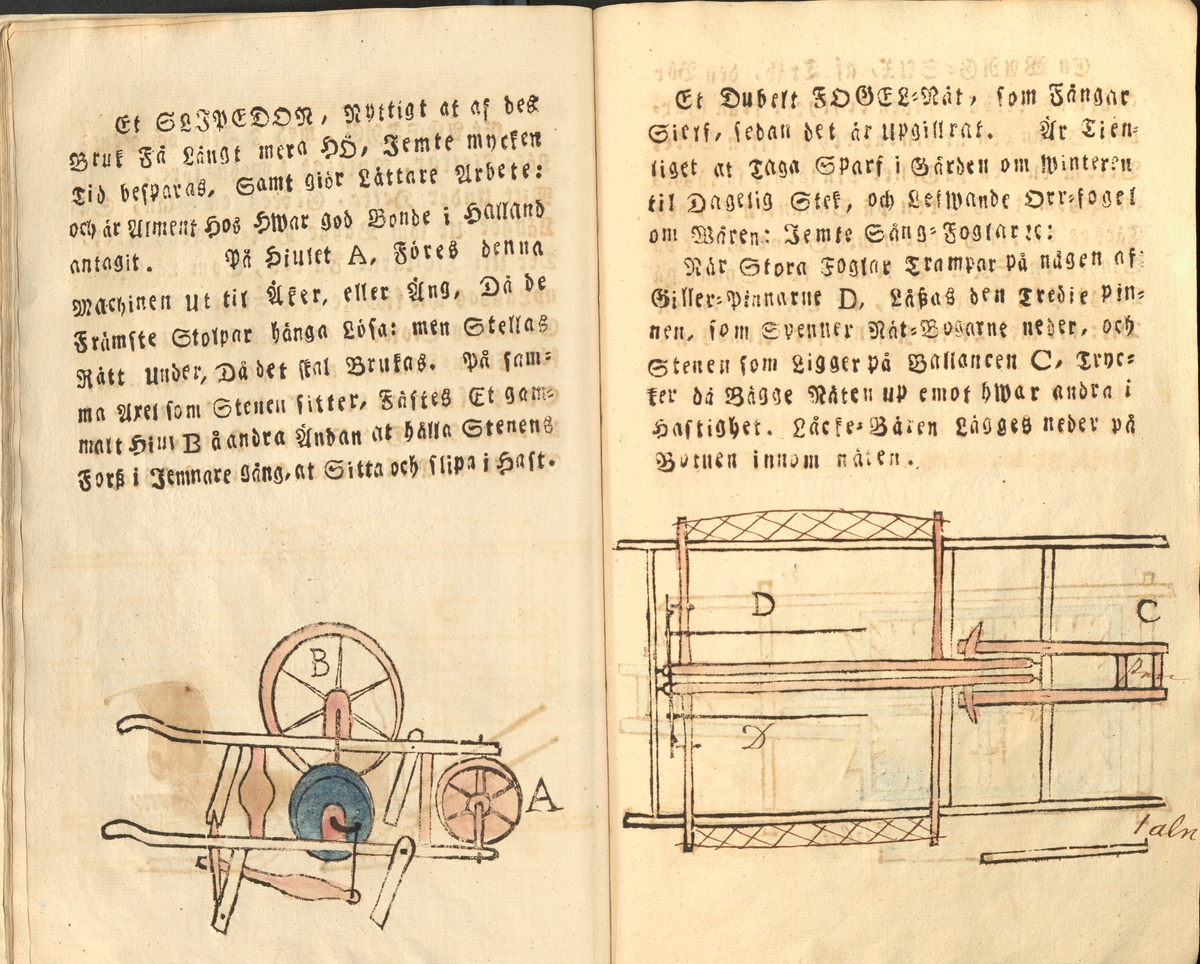 Et SLIPEDON, Nyttigt at af des
Bruk Få Långt mera HÖ, Jemte mycken
Tid besparas, Samt giör Lättare Arbete:
och är Alment Hos Hwar god Bonde i Halland
antagit. På Hiulet A, Föres denna
Machinen ut til Åker, eller Äng, Då de
Främste Stolpar hänga Lösa: men Stellas
Rätt Under, Då det skal Brukas. På sam-
ma Axel som Stenen sitter, Fästes Et gam-
malt Hiul B å andra Ändan at hålla Stenens
Forß i Jemnare gång, at Sitta och slipa i Hast.
B
A
Et Dubelt FOGEL-Nät, som Fångar
Sielf, sedan det är upgillrat. Är Tien-
liget at Taga Sparf i Gården om Winteren
til Dagelig Stek, och Lefwande Orr-fogel
om Wåren: Jemte Sång-Foglar ꝛc:
När Stora Foglar Trampar på någen af
Giller-Pinnarne D, Läßas den Tredie Pin-
nen, som Spenner Nät-Bogarne neder, och
Stenen som Ligger på Ballancen C, Tryc-
ker då Bägge Näten up emot hwar andra i
Hastighet. Läcke-Bären Lägges neder på
Botnen innom näten.
D
C
D
1 aln